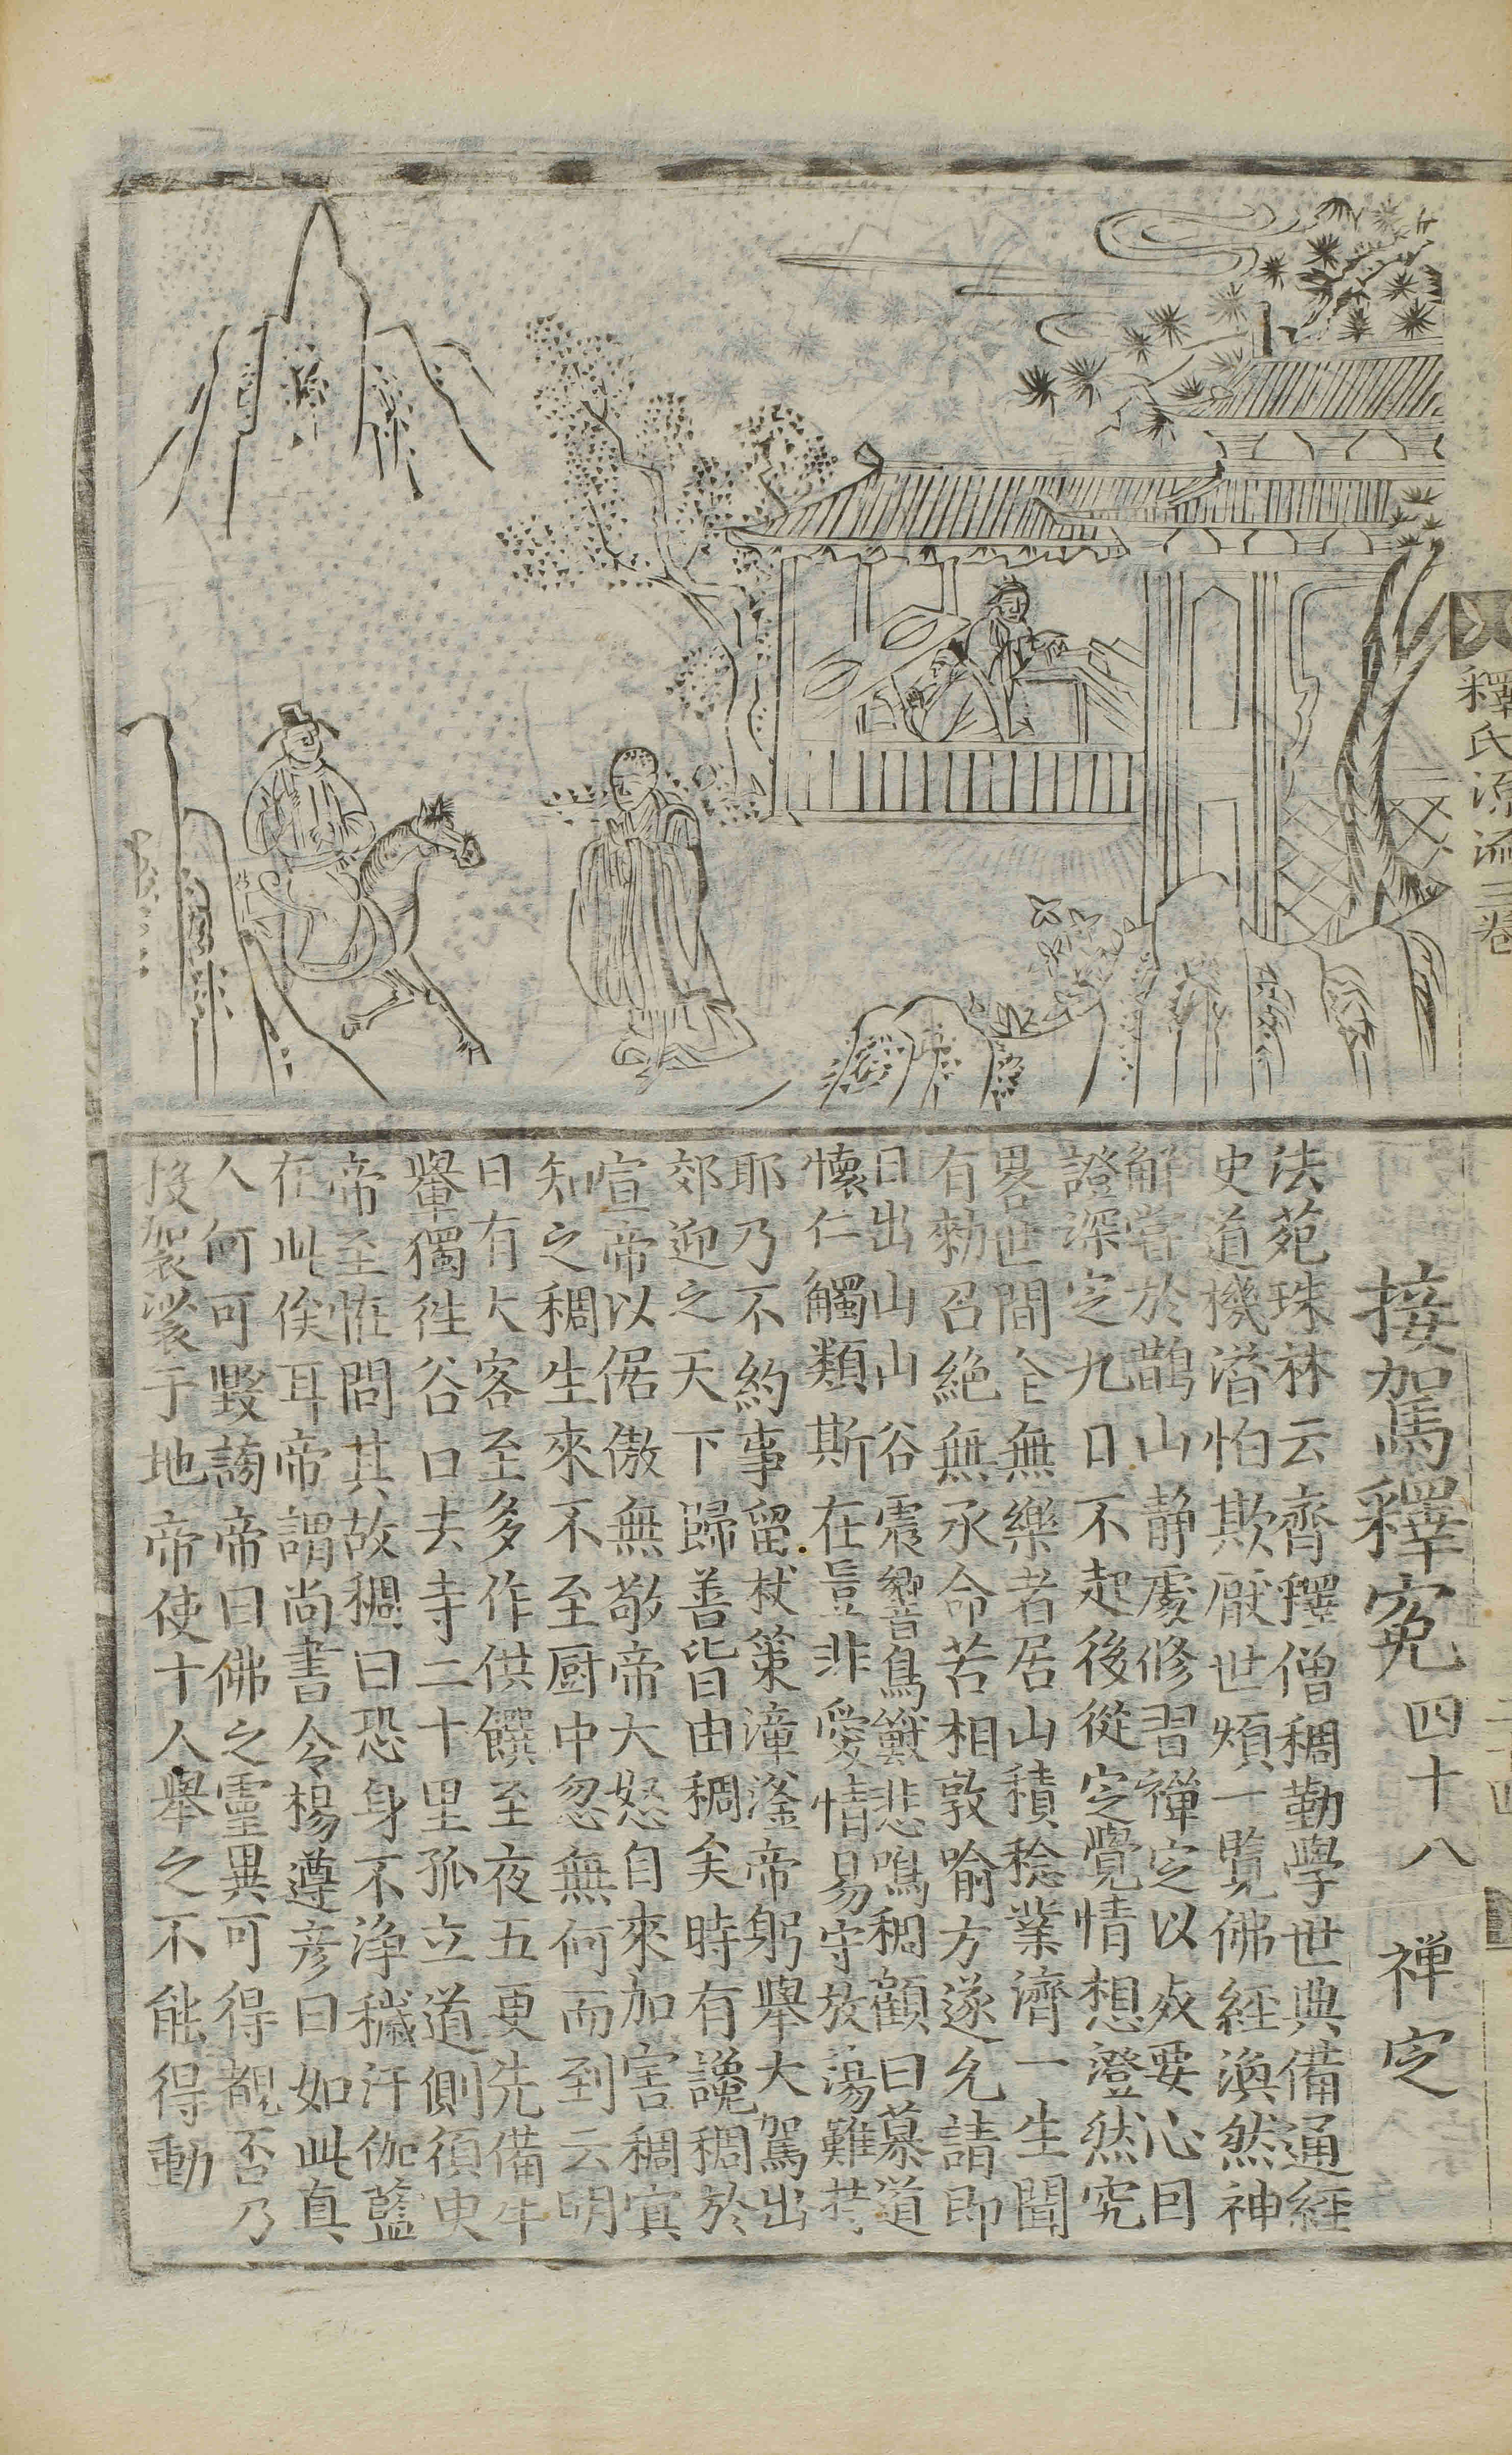 釋氏源流三卷
接駕釋冤 四十八 禅定
法苑珠林云齊釋僧稠勤學世典備通經
史道機潛怕欺厭世煩一覽佛經渙然神
解嘗於鵲山静處修習禪定以效要心目
證深定九日不起後從定覺情想澄然究
畧世間全無樂者居山積稔業濟一生聞
有勑召絶無承命苦相敦喻方遂允請即
日出山山谷震響鳥獸悲鳴稠顧曰慕道
懷仁觸類斯在豈非愛情易守放蕩難持
耶乃不約事留杖策漳滏帝躬舉大駕出
郊迎之天下歸善皆由稠矣時有讒稠於
宣帝以倨傲無敬帝大怒自來加害稠冥
知之稠生來不至厨中忽無何而到云明
日有大客至多作供饌至夜五更先備牛
轝獨徃谷口去寺二十里孤立道側須臾
帝至恠問其故稠曰恐身不净穢汙伽藍
在此俟耳帝謂尚書令楊遵彦曰如此真
人何可毀謗帝曰佛之靈異可得覩否乃
投袈裟于地帝使十人舉之不能得動